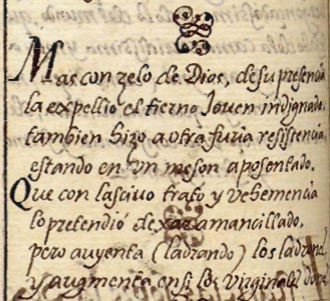 Mas con zelo de Dios, de su presencia
la expellio el tierno Jouen indignado,
tambien hizo a otra furia resistencia,
estando en vn meson aposentado.
Que con lasciuo trato y vehemencia
lo pretendió dexar amancillado,
pero auyenta (ladrando) los ladrones,
y augmenta en si los virginales dones